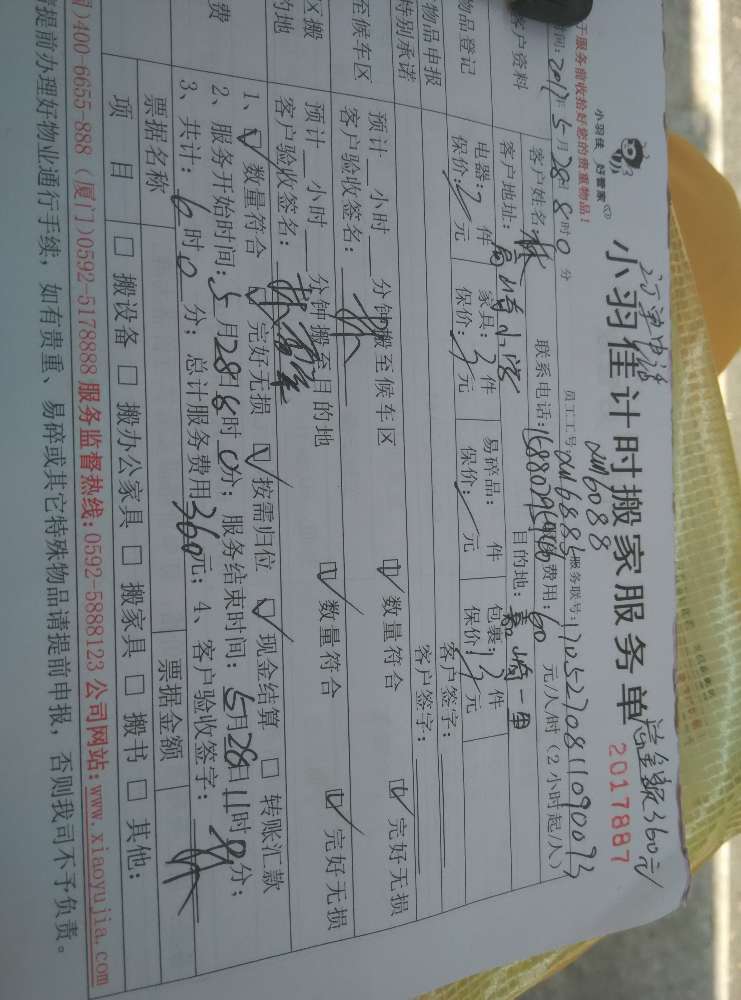 订单申请
总金额360元
小羽佳 好管家
小羽佳计时搬家服务单
2017887
于服务前收拾好您的贵重物品!
员工工号
服务联号:17052708110900 73
时间:2017年5月28日8时0分
客户资料
客户姓名:林
联系电话:
费用:60元/人/时(2小时起/人)
客户地址:高崎小学
目的地:嘉崎一里
物品登记
电器:2件
家具:3件
易碎品: 件
包裹:13件
保价:/元
保价:/元
保价:/元
保价:/元
物品申报
客户签字:
特别承诺
客户签字:
至候车区
预计__小时__分钟搬至候车区
数量符合
完好无损
客户验收签名:林
区搬
的地
预计__小时__分钟搬至目的地
数量符合
完好无损
客户验收签名:
费
1、数量符合 完好无损 按需归位 现金结算 转账汇款
2、服务开始时间:5月28日8时0分;服务结束时间:5月28日11时0分;
3、共计:6时0分;总计服务费用360元;4、客户验收签字:林
票据名称
票据金额
项目
□ 搬设备 □ 搬办公家具 □ 搬家具 □ 搬书 □ 其他:
)400-6655-888 (厦门)0592-5178888 服务监督热线:0592-5888123 公司网站:www.xiaoyujia.com
提前办理好物业通行手续,如有贵重、易碎或其它特殊物品请提前申报,否则我司不予负责。